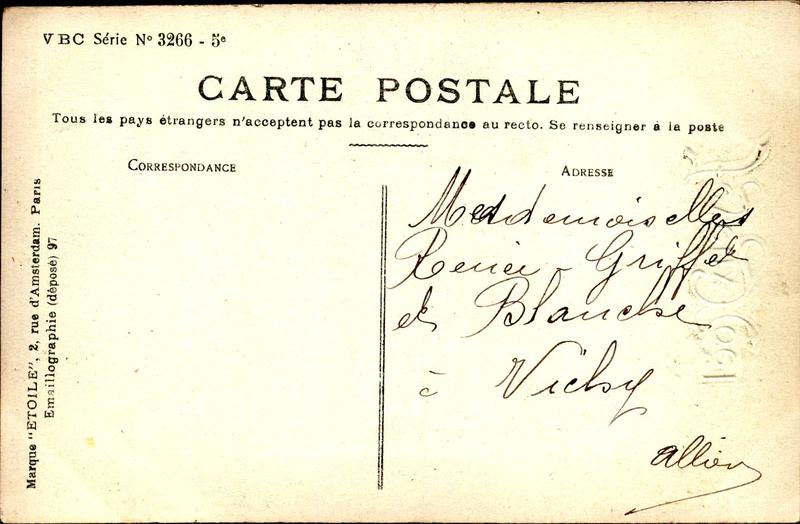 VBC Série Nº 3266 - 5e
CARTE POSTALE
Tous les pays étrangers n'acceptent pas la correspondance au recto. Se renseigner à la poste
CORRESPONDANCE
ADRESSE
Mesdemoiselles
Renée Griffet
et Blanche
à Vichy
Allier
Marque "ETOILE", 2, rue d'Amsterdam. Paris
Emaillographie (déposé) 97